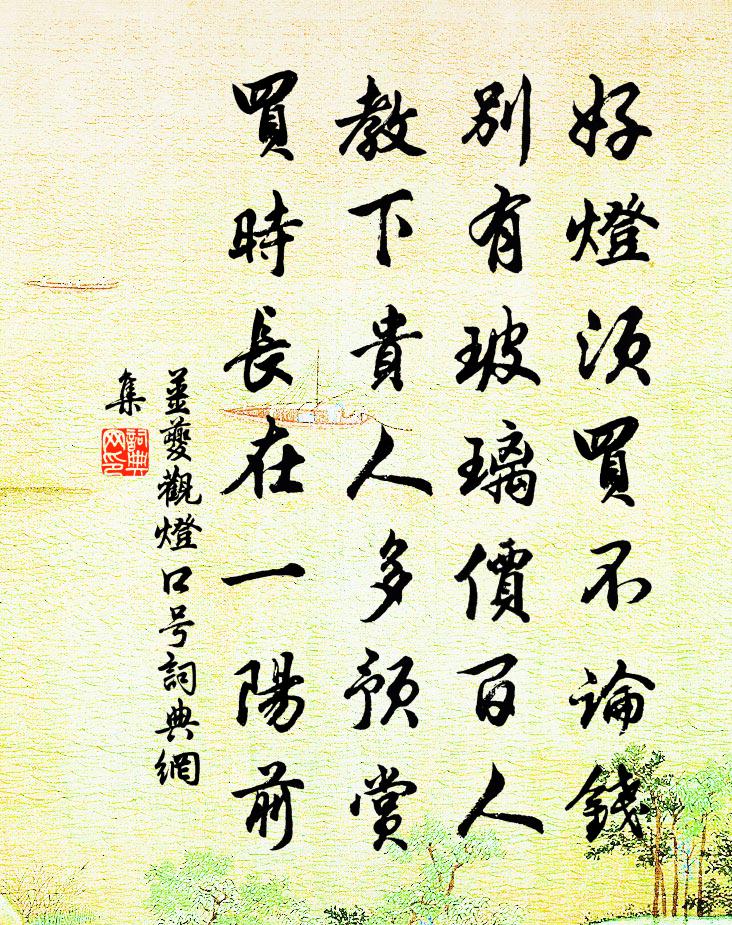 好燈須買不論錢
別有玻璃價百人
教下貴人多預賞
買時長在一陽前
姜夔觀燈口号詞典網
集
詞典
网印